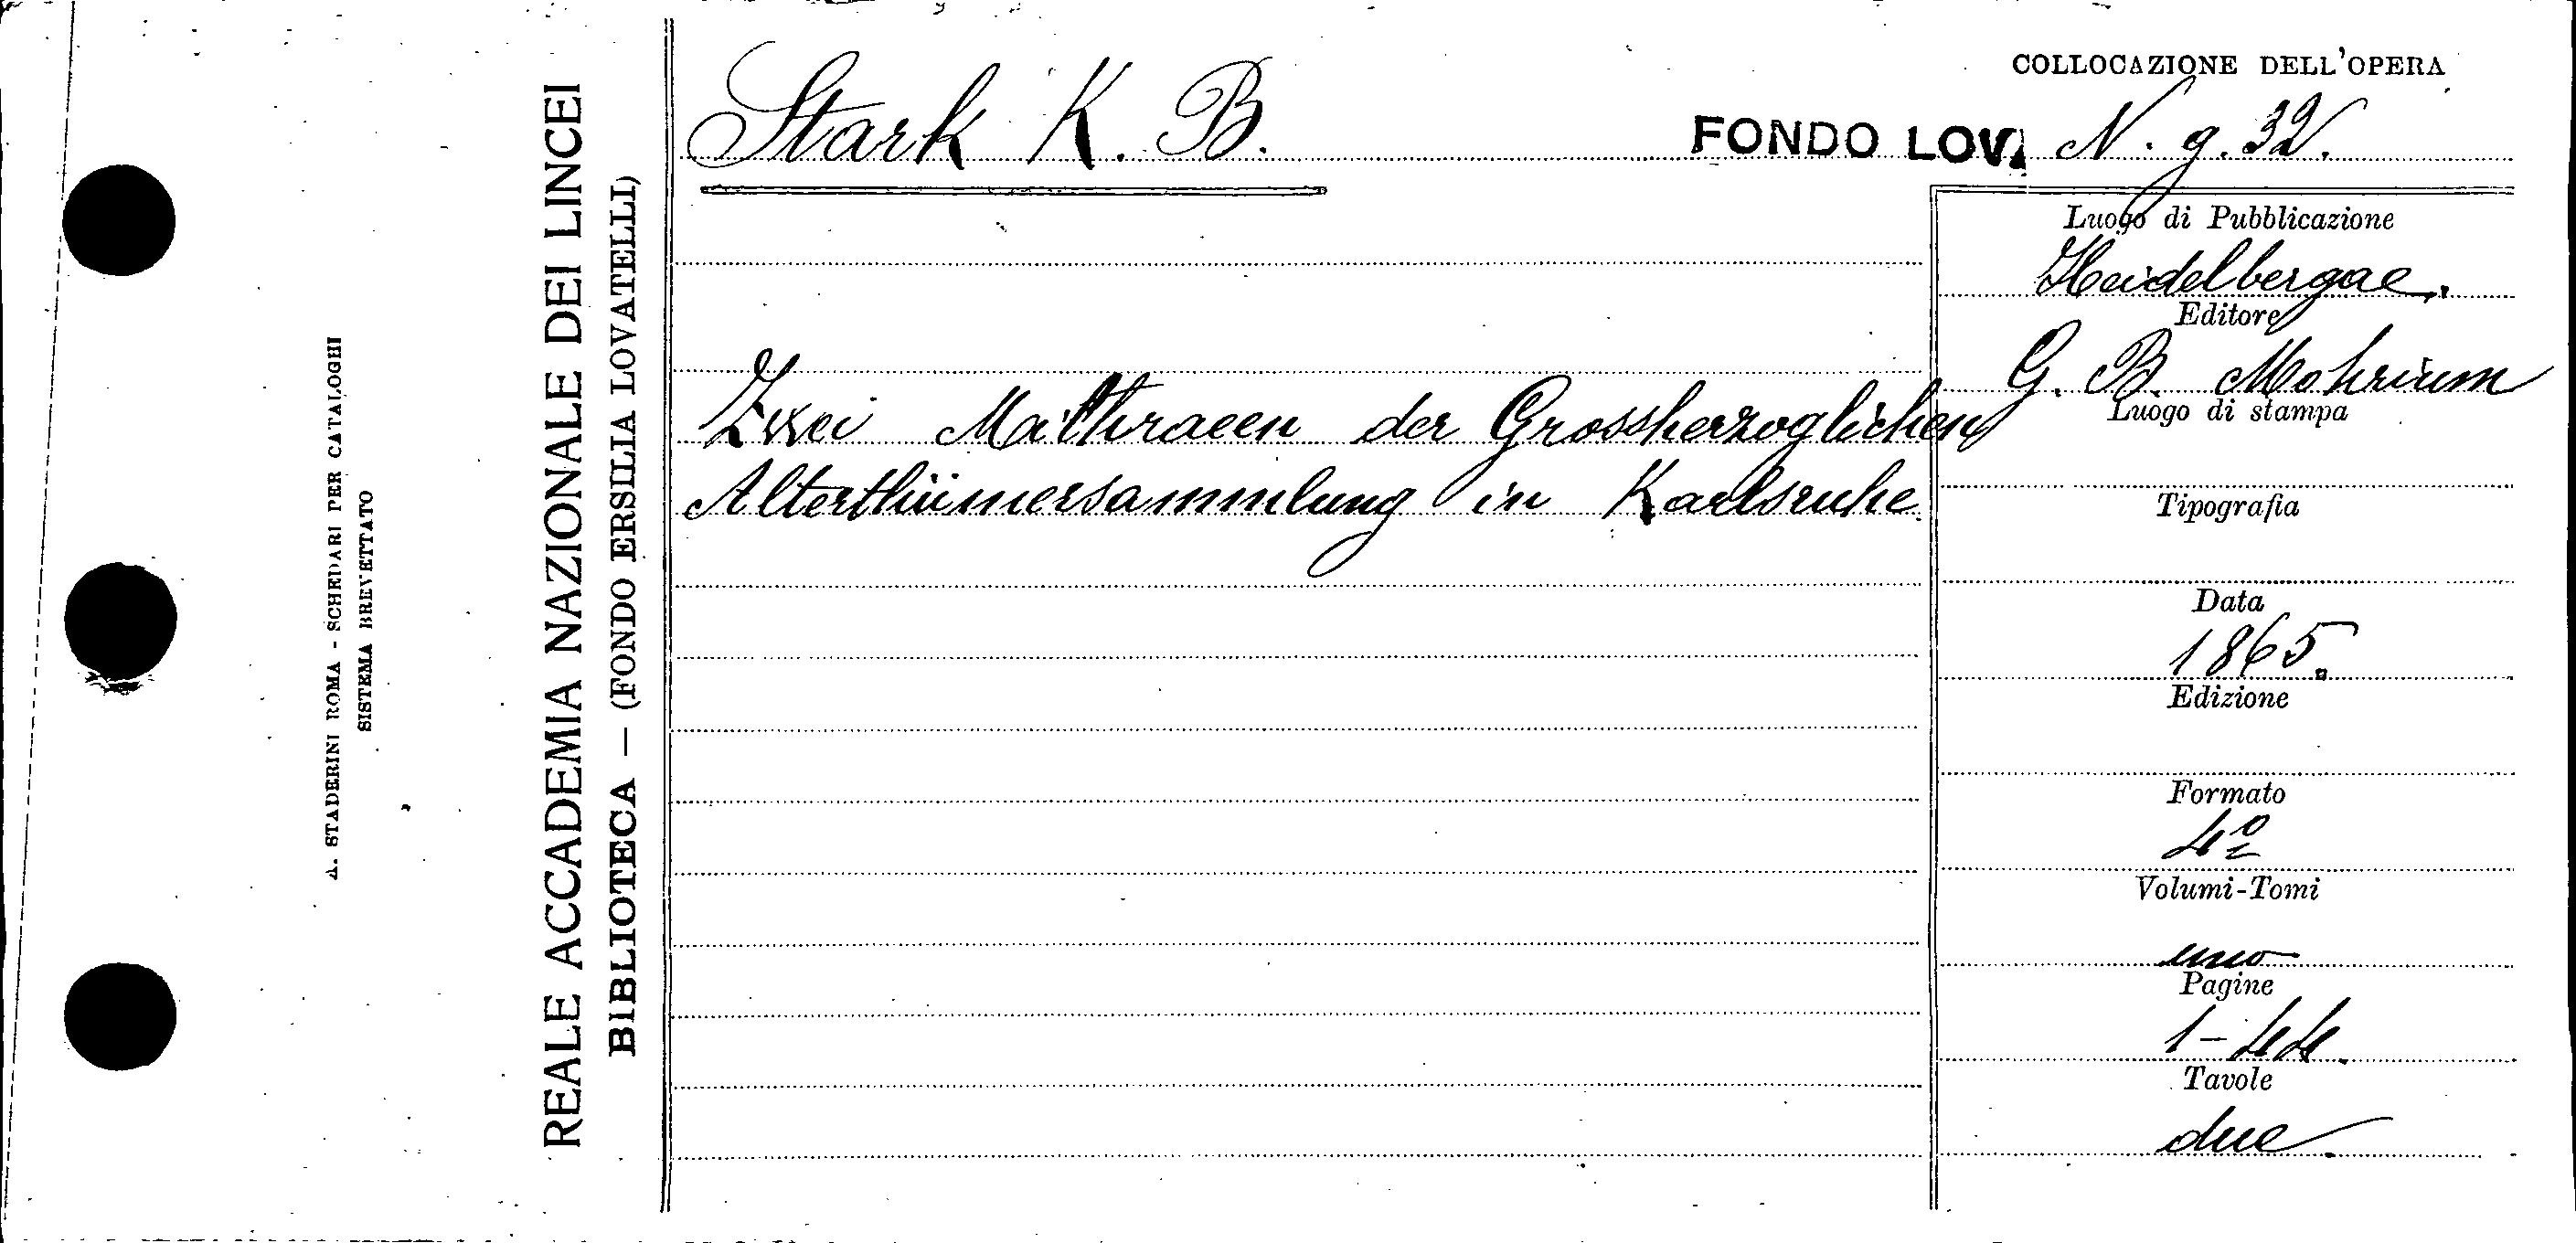 A. STADERINI ROMA - SCHEDARI PER CATALOGHI
SISTEMA BREVETTATO
REALE ACCADEMIA NAZIONALE DEI LINCEI
BIBLIOTECA — (FONDO ERSILIA LOVATELLI)
Stark K. B.
COLLOCAZIONE DELL'OPERA
FONDO LOV. N. g. 32.
Zwei Mithraeen der Grossherzoglichen
Alterthümersammlung in Karlsruhe
Luogo di Pubblicazione
Heidelbergae.
Editore
G. B. Mohrium
Luogo di stampa
Tipografia
Data
1865.
Edizione
Formato
4º
Volumi-Tomi
uno
Pagine
1-44.
Tavole
due.